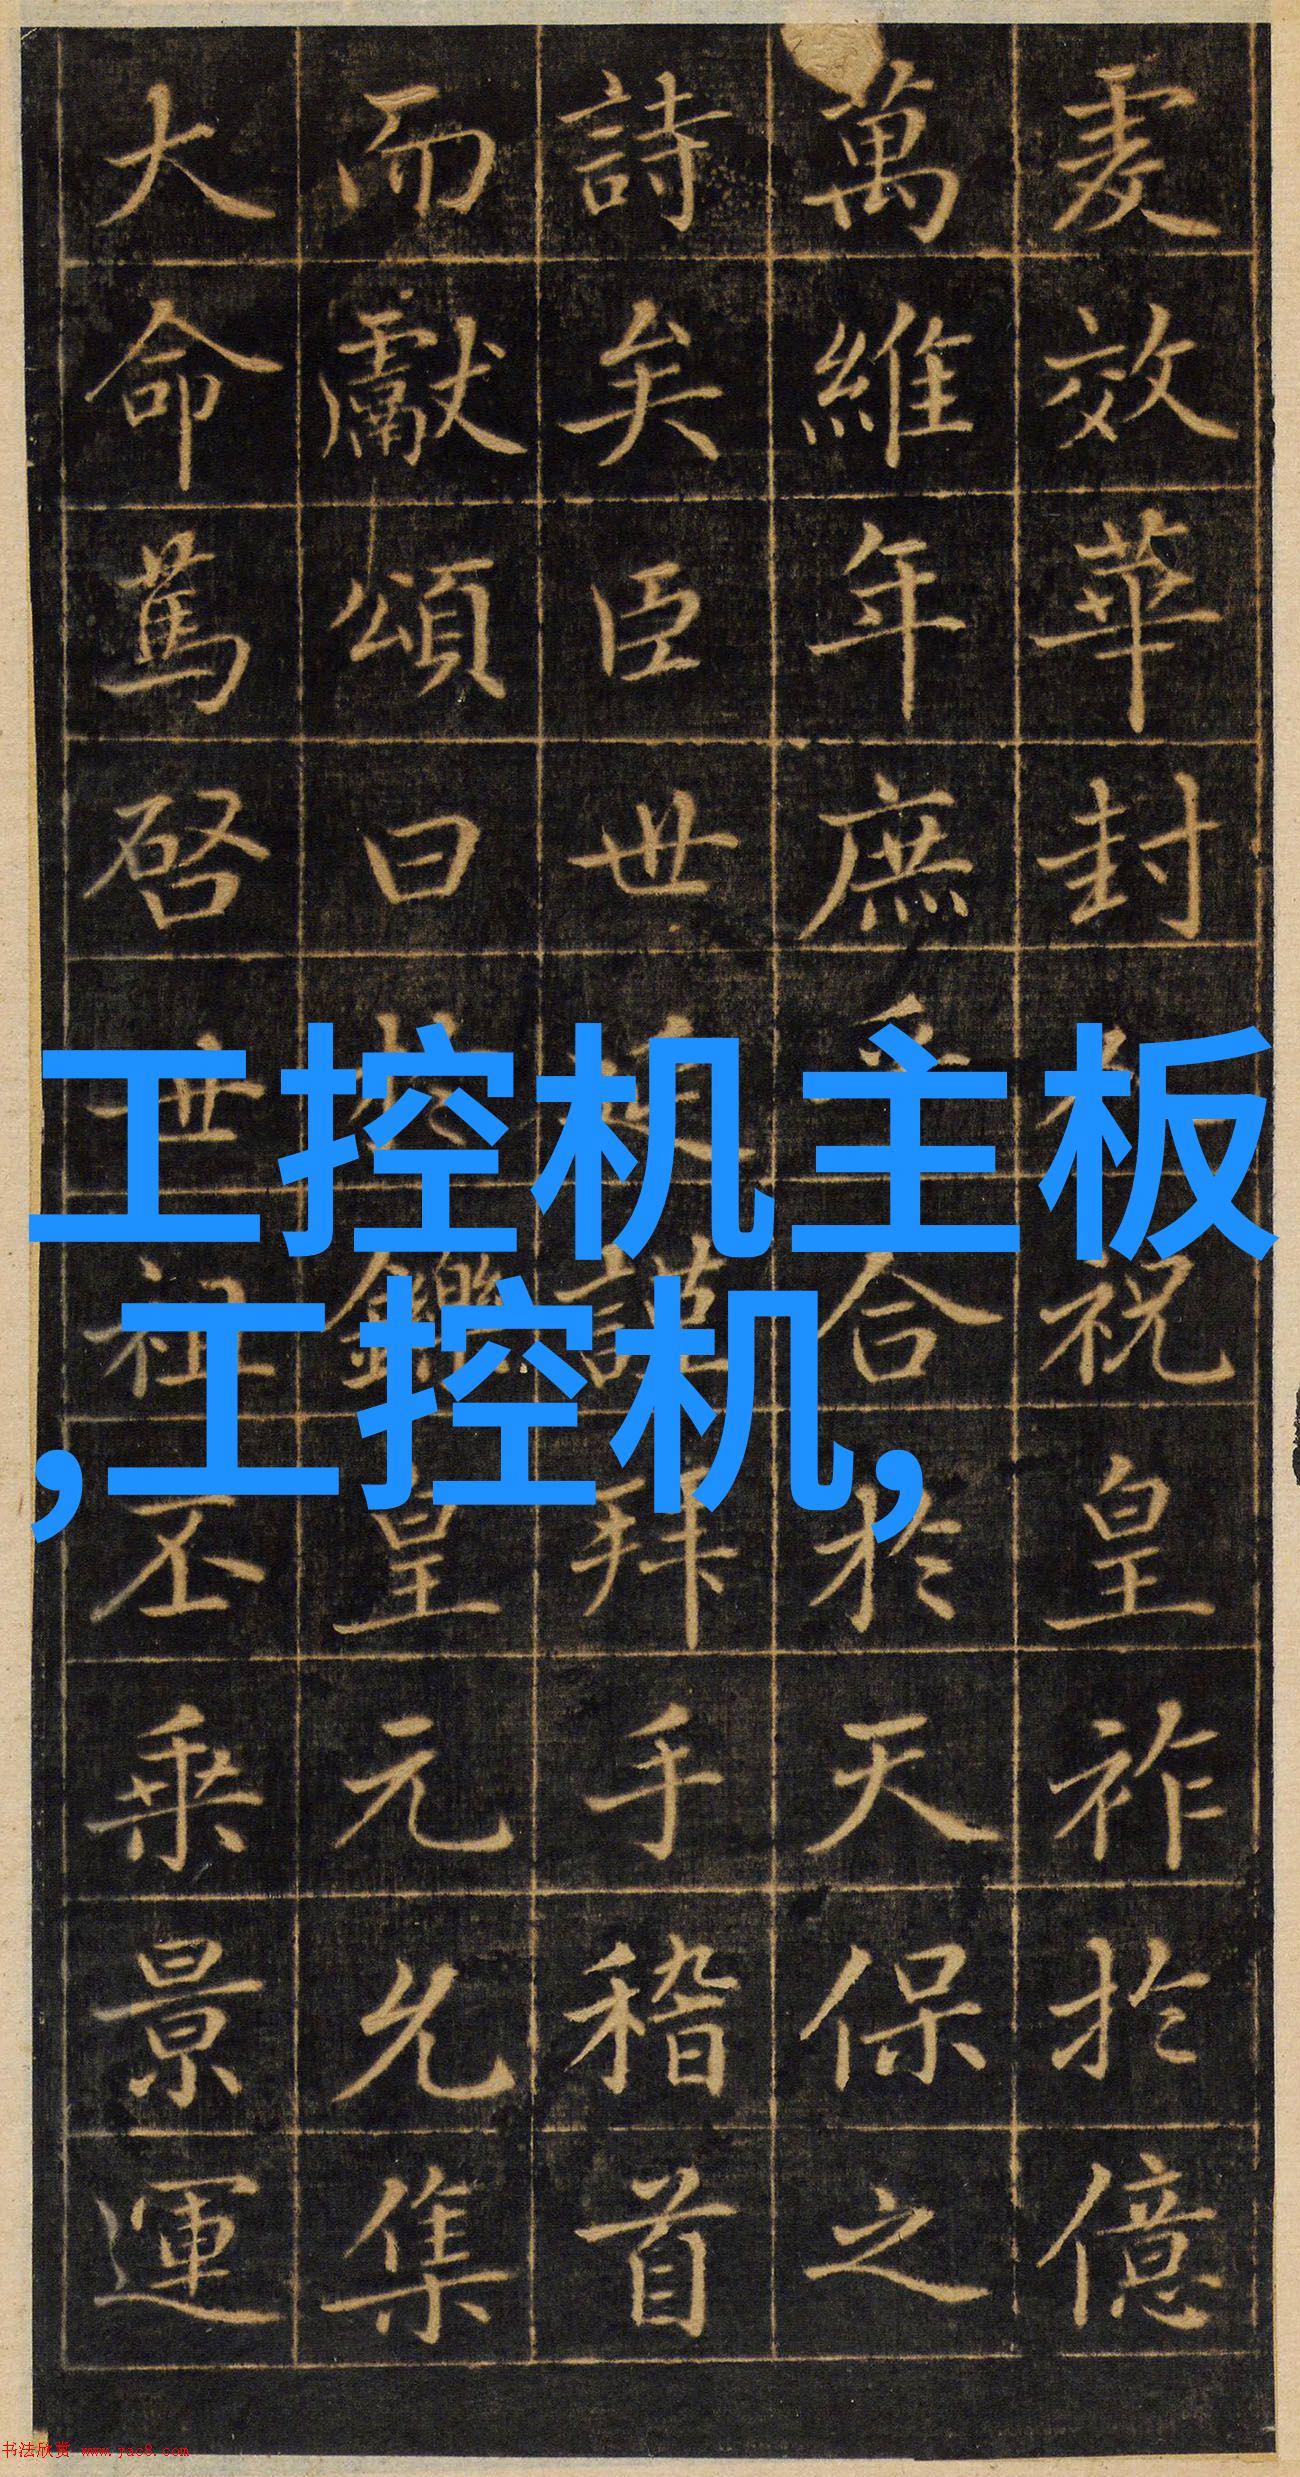 效華封祝皇祚於億
萬維年庶乎合於天保之
詩矣臣世延謹拜手稽首
而獻頌曰於鑠皇元允集
大命篤啓世祖丕乘景運
工控机主板
,工控机,
书法欣赏 www.yac8.com